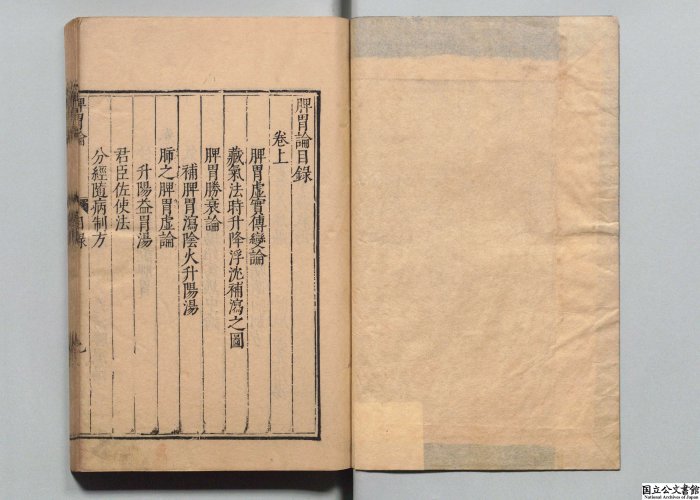 脾胃論目錄
卷上
脾胃虛實傳變論
藏氣法時升降浮沈補瀉之圖
脾胃勝衰論
補脾胃瀉陰火升陽湯
肺之脾胃虛論
升陽益胃湯
君臣佐使法
分經隨病制方
脾胃論
目錄
国立公文書館
National Archives of Japan